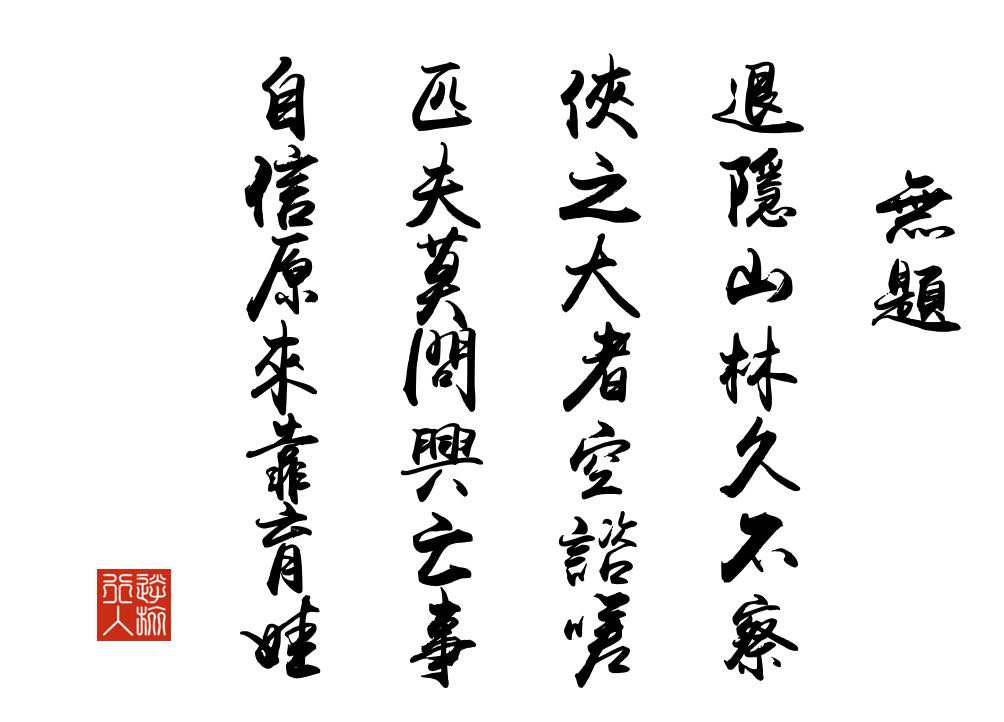 無題
退隱山林久不察
俠之大者空諮嗟
匹夫莫問興亡事
自信原來靠育娃